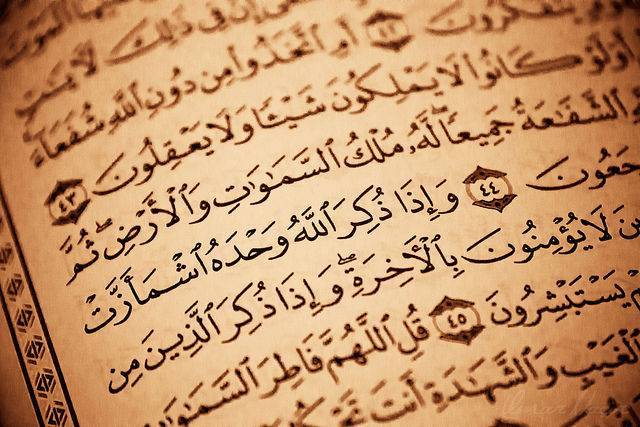 إِنَّ فِى ذَٰلِكَ لَـَٔايَٰتٍ
يَتَفَكَّرُونَ ٤٢ أَمِ ٱتَّخَذُوا۟ مِن دُونِ ٱللَّهِ شُفَعَآءَ
أَوَلَوْ كَانُوا۟ لَا يَمْلِكُونَ شَيْـًٔا وَلَا يَعْقِلُونَ ٤٣
ٱلشَّفَٰعَةُ جَمِيعًا ۖ لَّهُۥ مُلْكُ ٱلسَّمَٰوَٰتِ وَٱلْأَرْضِ ۖ ثُمَّ
جَعُونَ ٤٤ وَإِذَا ذُكِرَ ٱللَّهُ وَحْدَهُ ٱشْمَأَزَّتْ
ينَ لَا يُؤْمِنُونَ بِٱلْـَٔاخِرَةِ ۖ وَإِذَا ذُكِرَ ٱلَّذِينَ مِن
يَسْتَبْشِرُونَ ٤٥ قُلِ ٱللَّهُمَّ فَاطِرَ ٱلسَّمَٰوَٰتِ
ٱلْغَيْبِ وَٱلشَّهَٰدَةِ أَنتَ تَحْكُ